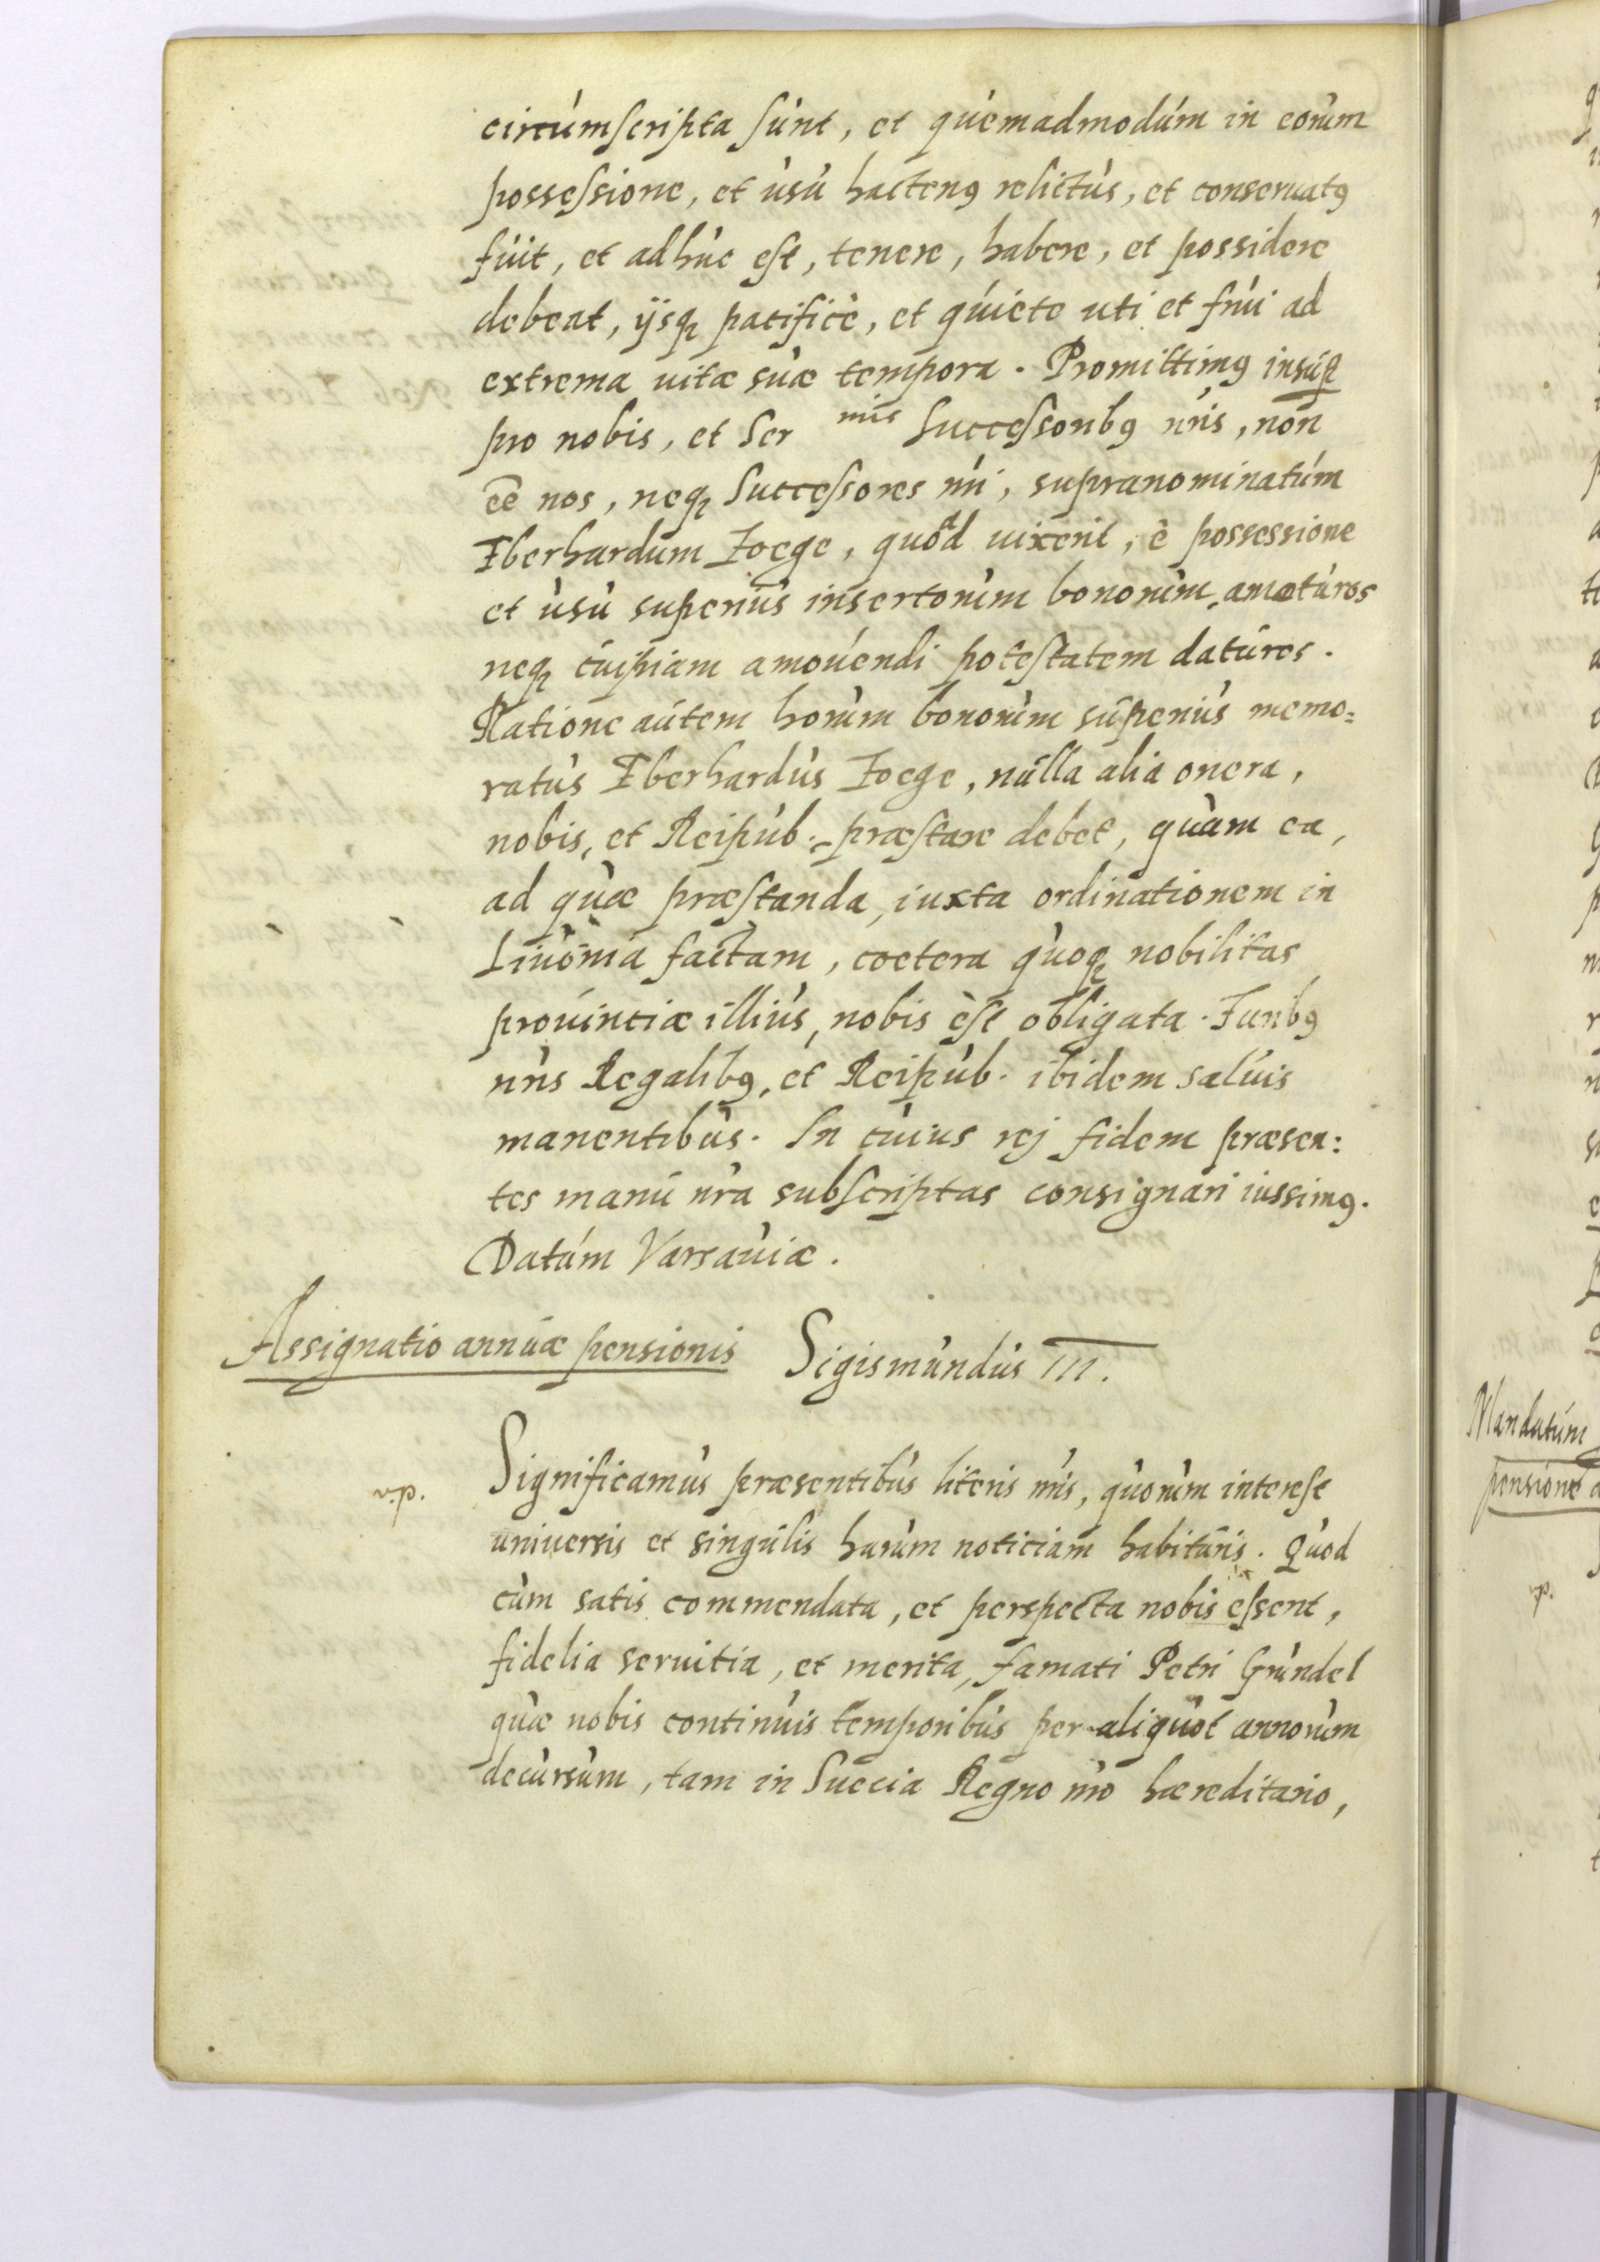 circúmscripta súnt, et quemadmodúm in eorúm
possessione, et úsú hactenꝰ relictús, et conseruatꝰ
fúit, et adhúc est, tenere, habere, et possidere
debeat, ijsqꝫ pacificè, et qúiete uti et frúi ad
extrema uitæ súæ tempora. Promittimꝰ insúꝑ
pro nobis, et Ser mis Successoribꝰ nr̃is, non
eẽ nos, neqꝫ Successores nr̃i, supranominatúm
Eberhardum Zoege, quoad uixerit, è possessione
et úsú superiús insertorúm bonorúm, amoturos
neqꝫ cúipiam amouendi potestatem datúros.
Ratione aútem horúm bonorúm súperiús memo=
ratús Eberhardús Zoege, núlla alia onera,
nobis, et Reipúb. præstare debet, quàm ea,
ad qúæ præstanda, iuxta ordinationem in
Liuonia factam, coetera qúoqꝫ nobilitas
proúinciæ illiús, nobis est obligata. Iuribꝰ
nr̃is Regalibꝰ, et Reipúb. ibidem saluis
manentibús. In cúius rej fidem præsen:
tes manú nr̃a subscriptas consignari iussimꝰ.
Datúm Varsauiæ.
Assignatio annúæ pensionis Sigismúndús III.
Significamús præsentibús literis nr̃is, qúorúm interese
uniuersis et singúlis harúm noticiam habitúris. Qúod
cúm satis commendata, et perspecta nobis essent,
fidelia seruitia, et merita, famati Petri Grúndel
qúæ nobis continúis temporibús per aliqúot annorúm
decúrsúm, tam in Suecia Regno nr̃o hæreditario,
Mandatúm
pensione